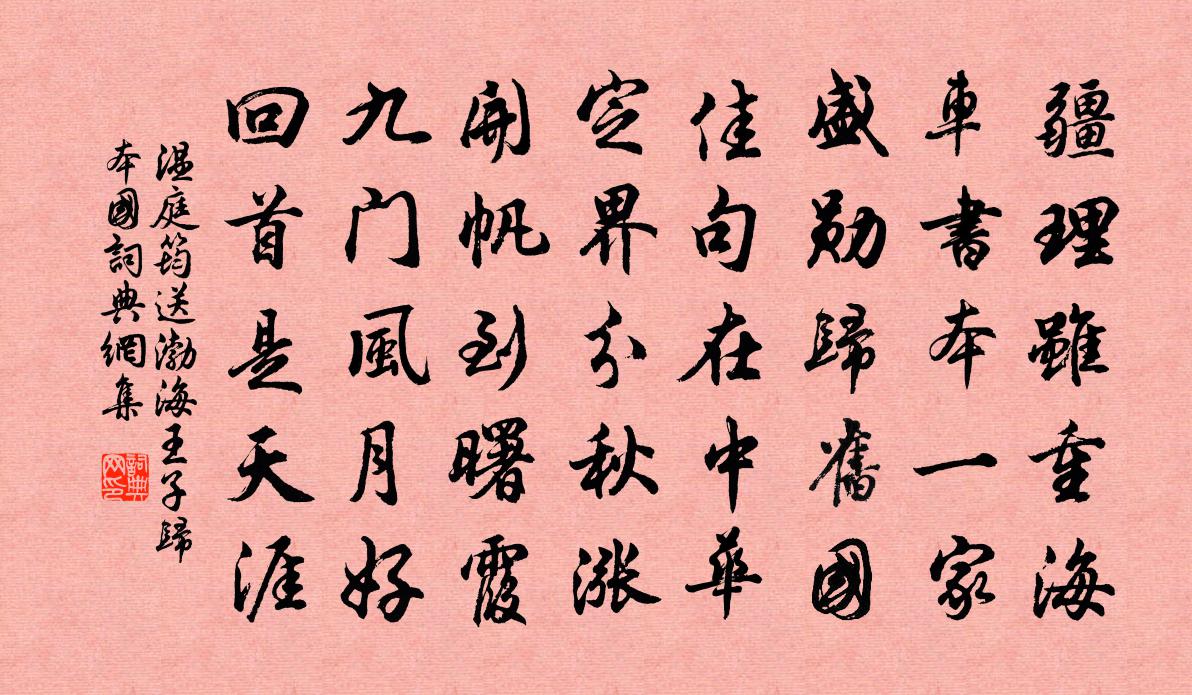 疆理雖重海
車書本一家
盛勛歸舊國
佳句在中華
定界分秋漲
開帆到曙霞
九门風月好
回首是天涯
溫庭筠送渤海王子歸
本國詞典網集
詞典网印